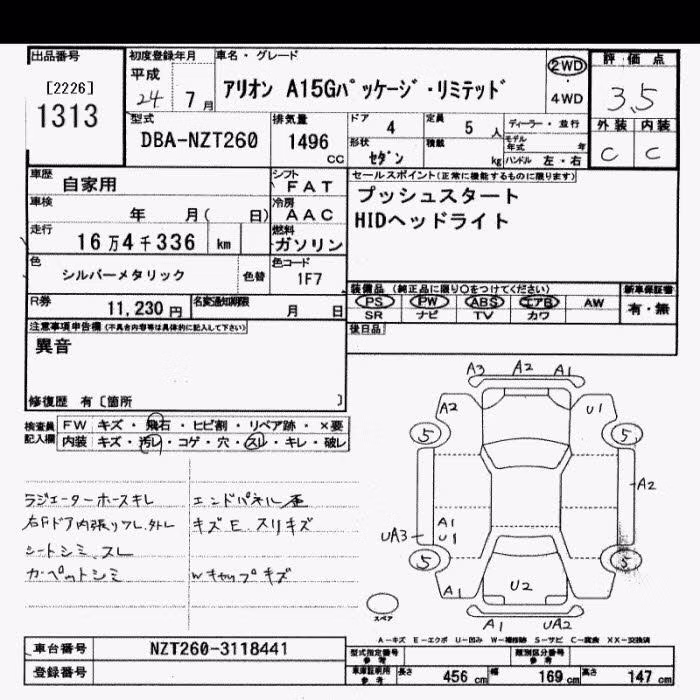 出品番号
[2226]
1313
初度登録年月
平成
24 7月
車名・グレード
アリオン A15Gパッケージ・リミテッド
2WD
・
4WD
評価点
3.5
外装 内装
C C
型式
DBA-NZT260
排気量
1496
CC
ドア 4
定員 5 人
ディーラー・並行
形状 セダン
積載 kg
モデル年式 年
ハンドル 左・右
車歴
自家用
シフト
FAT
車検
年 月( 日)
冷房
AAC
走行
16万4千336 km
燃料
ガソリン
色
シルバーメタリック
色替
色コード
1F7
R券
11,230円
名変通知期限
月 日
セールスポイント(正常に機能するものに限ります)
プッシュスタート
HIDヘッドライト
装備品 (純正品に限り○をつけてください)
PS PW ABS エアB AW
SR ナビ TV カワ
新車保証書
有・無
後日品
注意事項申告欄 (不具合内容等は具体的に記入して下さい)
異音
修復歴 有〔箇所 〕
検査員記入欄
FW キズ・飛石・ヒビ割・リペア跡・×要
内装 キズ・汚レ・コゲ・穴・スレ・キレ・破レ
ラジエーターホースキレ
右Fドア内張リフレ、外レ
シートシミ、スレ
カーペットシミ
エンドパネル歪
キズE スリキズ
Wキャップキズ
A3 A2 A1
A2 U1
5 5
A2
A1
U1
UA3
5 5
A1 U2 A1
A1 UA2
スペア
A-キズ E-エクボ U-凹み W-補修跡 S-サビ C-腐食 XX-交換済
車台番号
NZT260-3118441
登録番号
型式指定番号 参考
類別区分番号 参考
車庫証明用 参考
長さ 456 cm
幅 169 cm
高さ 147 cm